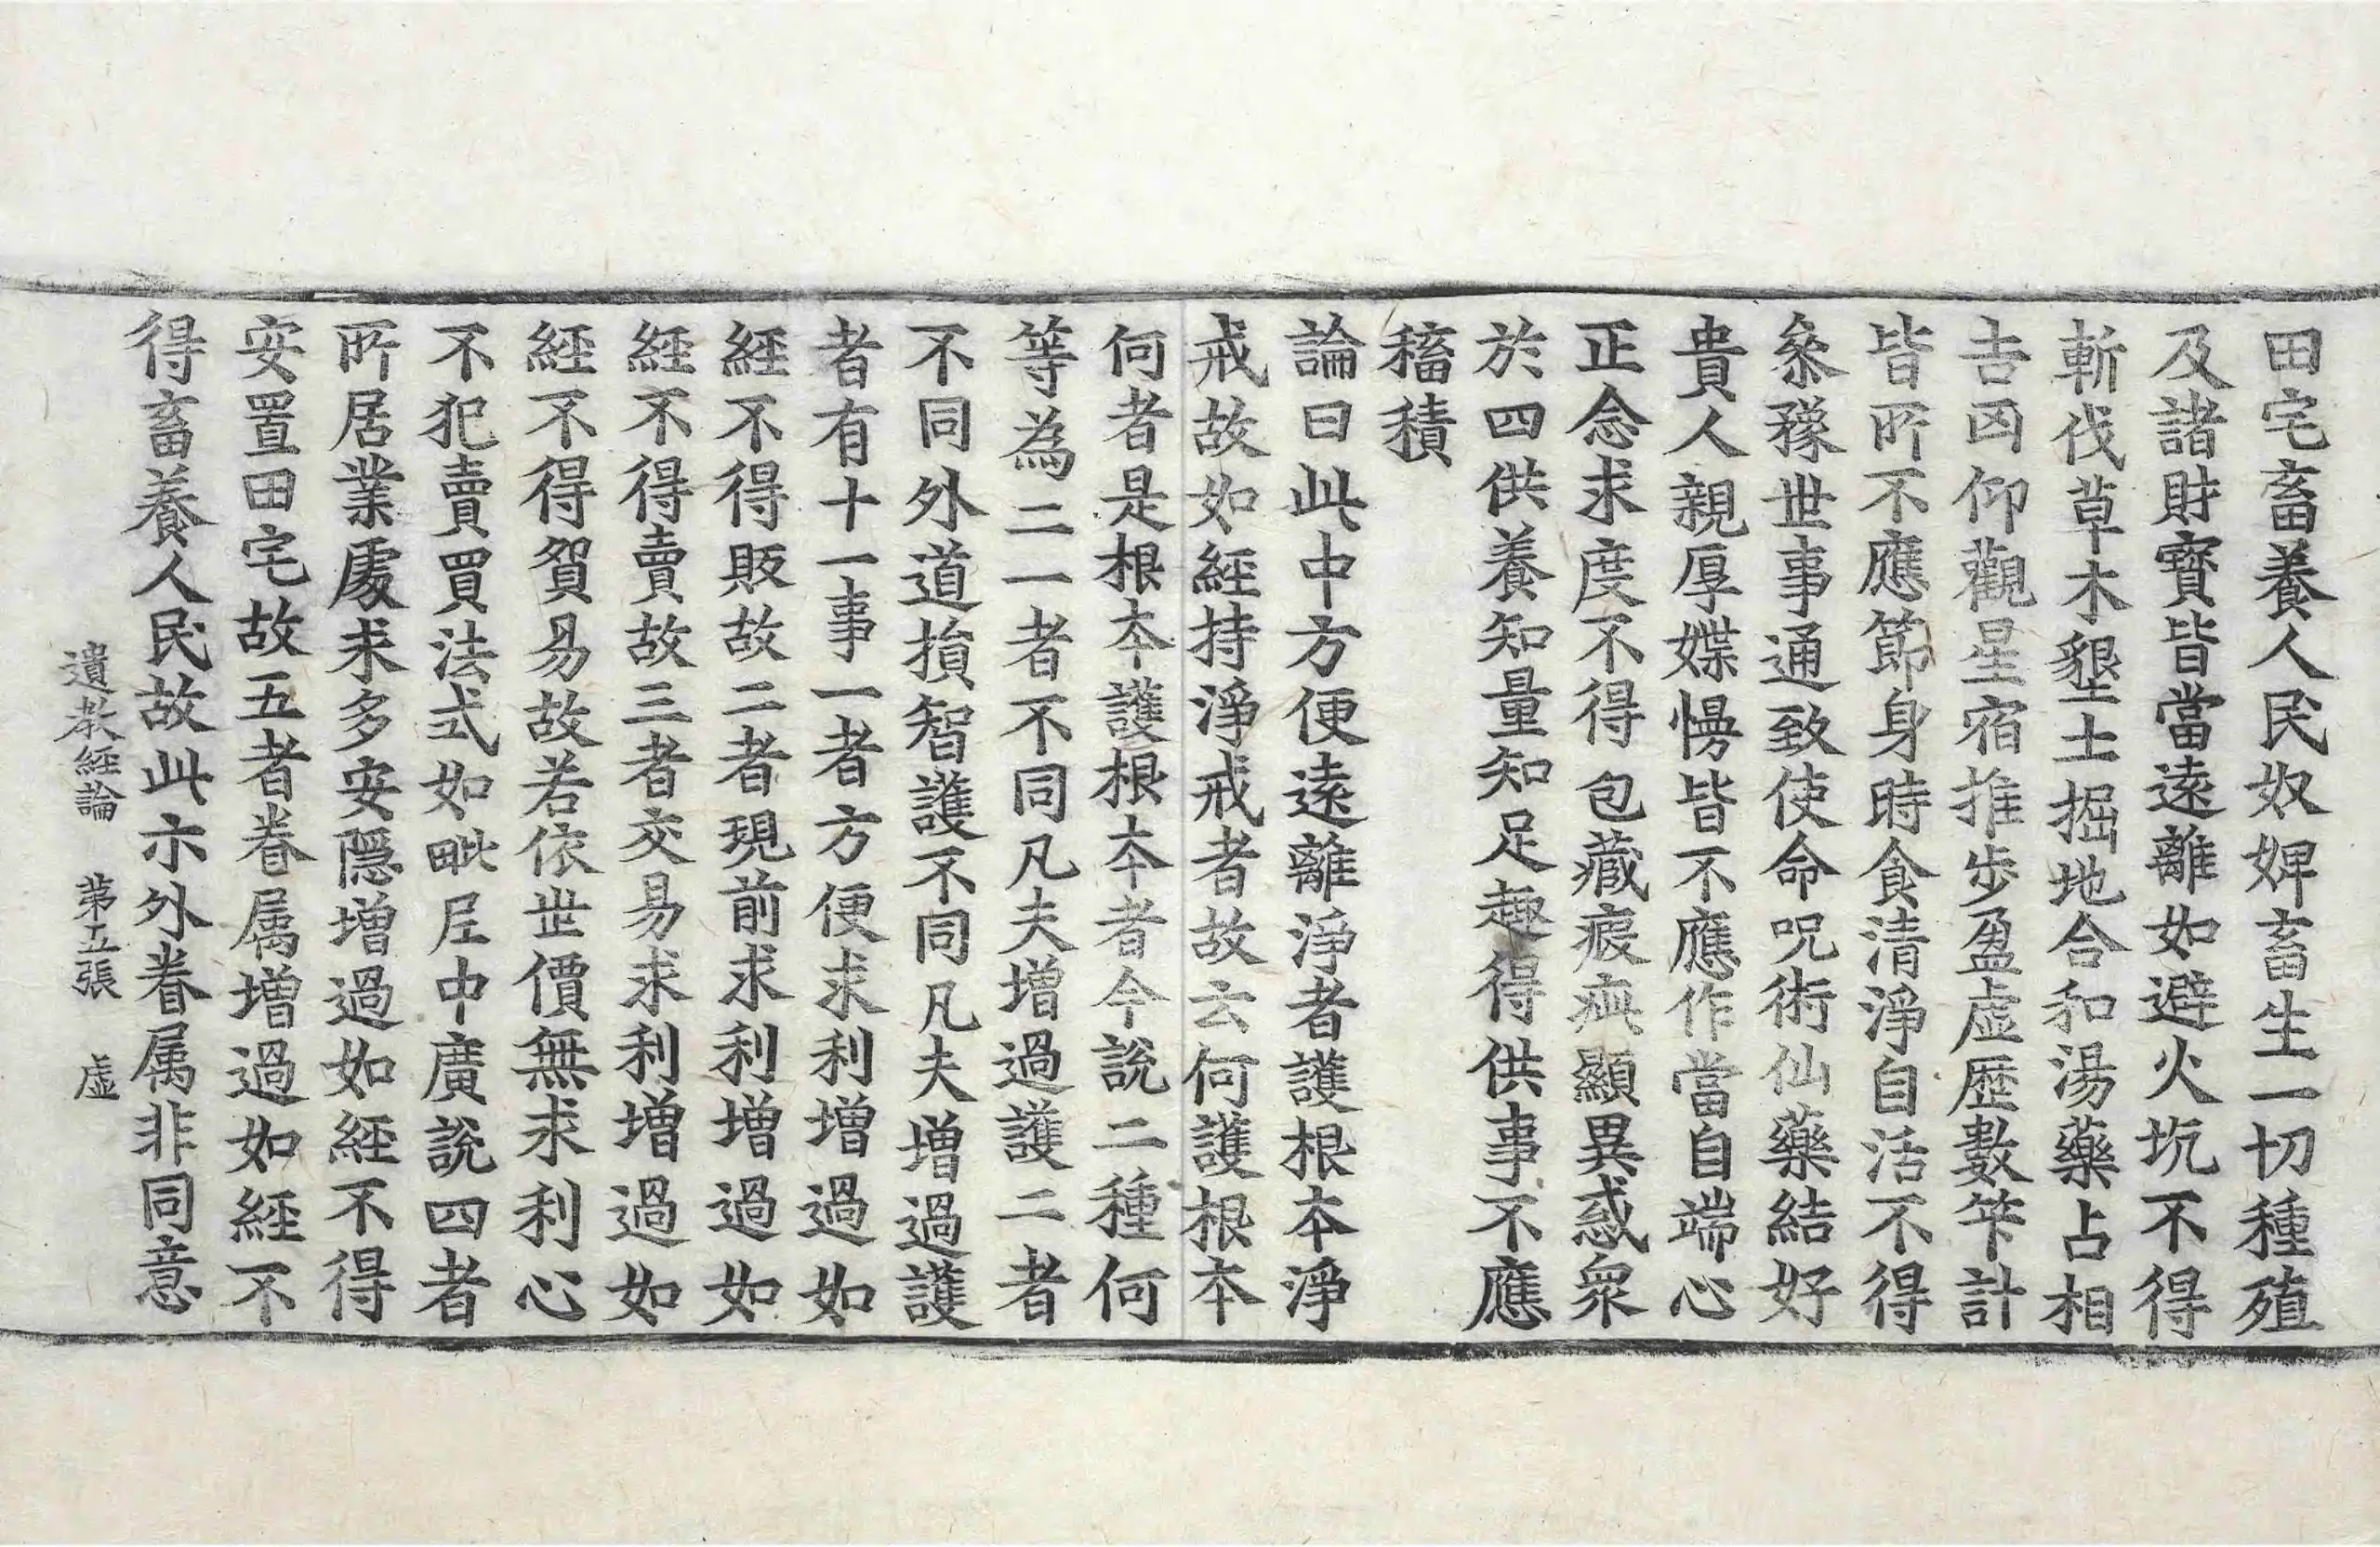 田宅畜養人民奴婢畜生一切種殖
及諸財寶皆當遠離如避火坑不得
斬伐草木墾土掘地合和湯藥占相
吉凶仰觀星宿推步盈虛歷數筭計
皆所不應節身時食清淨自活不得
叅豫世事通致使命呪術仙藥結好
貴人親厚媟慢皆不應作當自端心
正念求度不得包藏瑕疵顯異惑衆
於四供養知量知足趣得供事不應
稸積
論曰此中方便遠離淨者護根本淨
戒故如經持淨戒者故云何護根本
何者是根本護根本者今說二種何
等為二一者不同凡夫增過護二者
不同外道損智護不同凡夫增過護
者有十一事一者方便求利增過如
經不得販故二者現前求利增過如
經不得賣故三者交易求利增過如
經不得貿易故若依世價無求利心
不犯賣買法式如毗尼中廣說四者
所居業處求多安隱增過如經不得
安置田宅故五者眷属增過如經不
得畜養人民故此示外眷属非同意
遺教經論 第五張 虛